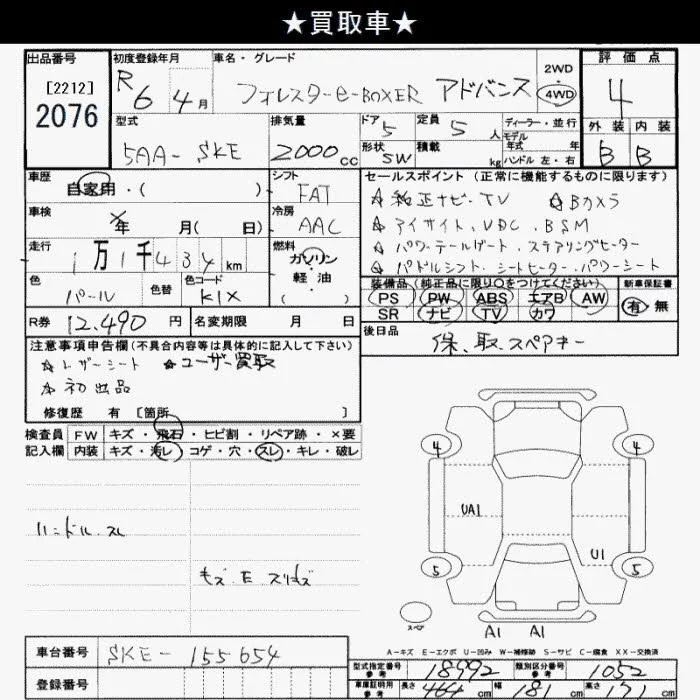 ★買取車★
出品番号
[2212]
2076
初度登録年月
R6 4月
車名・グレード
フォレスターe-BOXER アドバンス
2WD
4WD
評価点
4
外装 内装
B B
型式
5AA-SKE
排気量
2000cc
ドア 5
定員 5人
ディーラー・並行
モデル年式 年
形状 SW
積載 kg
ハンドル 左・右
車歴
自家用・( )
シフト
FAT
車検
年 月( 日)
冷房
AAC
走行
1万1千434km
燃料
ガソリン
軽・油
( )
色
パール
色替
色コード
K1X
R券 12,490円
名変期限 月 日
セールスポイント(正常に機能するものに限ります)
☆純正ナビ・TV ☆Bカメラ
☆アイサイト、VDC、BSM
☆パワーテールゲート、ステアリングヒーター
☆パドルシフト、シートヒーター、パワーシート
装備品(純正品に限り○をつけてください)
PS PW ABS エアB AW
SR ナビ TV カワ
新車保証書
有 無
後日品
保、取、スペアキー
注意事項申告欄(不具合内容等は具体的に記入して下さい)
☆レザーシート ★ユーザー買取
☆初出品
修復歴 有 [箇所 ]
検査員
記入欄
FW キズ・飛石・ヒビ割・リペア跡・×要
内装 キズ・汚レ コゲ・穴・スレ・キレ・破レ
ハンドル スレ
キズ・E・スリキズ
4 4
UA1
U1
5 5
スペア
A1 A1
A-キズ E-エクボ U-凹み W-補修跡 S-サビ C-腐食 XX-交換済
車台番号
SKE-155654
登録番号
型式指定番号 参考 18992
類別区分番号 参考 1052
車庫証明用 参考
長さ 464cm 幅 181cm 高さ 171cm